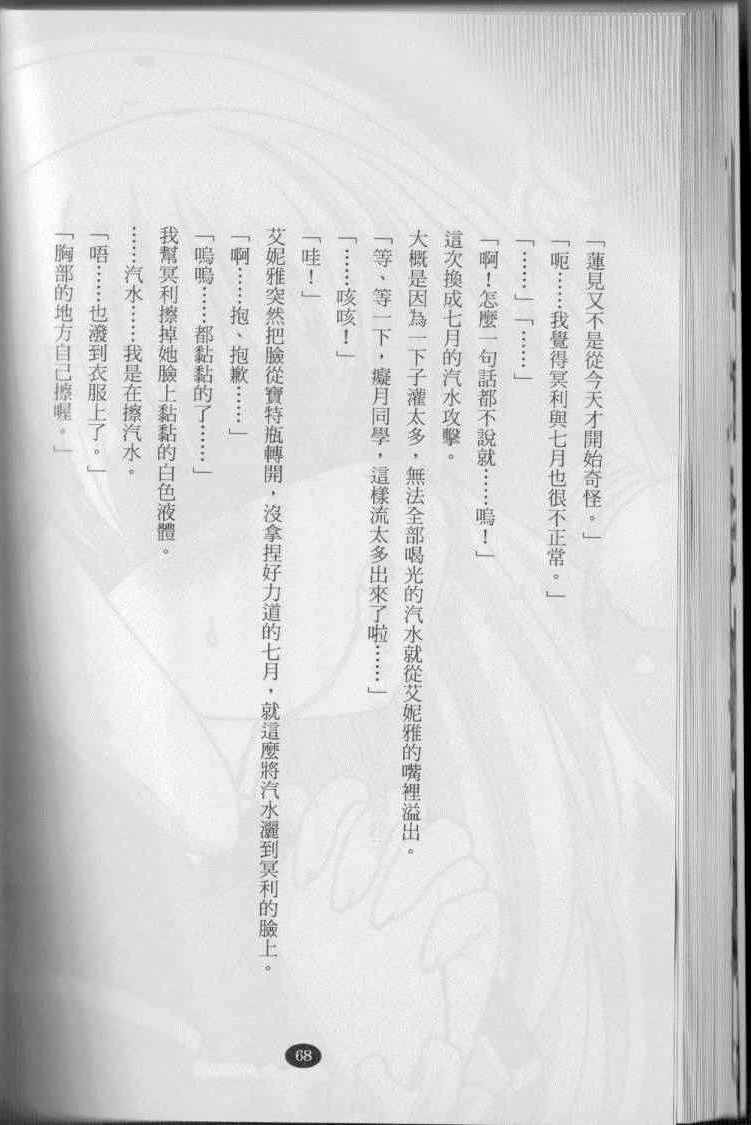 「蓮見又不是從今天才開始奇怪。」
「呃……我覺得冥利與七月也很不正常。」
「……」「……」
「啊！怎麼一句話都不說就……嗚！」
這次換成七月的汽水攻擊。
大概是因為一下子灌太多，無法全部喝光的汽水就從艾妮雅的嘴裡溢出。
「等、等一下，癡月同學，這樣流太多出來了啦……」
「……咳咳！」
「哇！」
艾妮雅突然把臉從寶特瓶轉開，沒拿捏好力道的七月，就這麼將汽水灑到冥利的臉上。
「啊……抱、抱歉……」
「嗚嗚……都黏黏的了……」
我幫冥利擦掉她臉上黏黏的白色液體。
……汽水……我是在擦汽水。
「唔……也潑到衣服上了。」
「胸部的地方自己擦喔。」
68